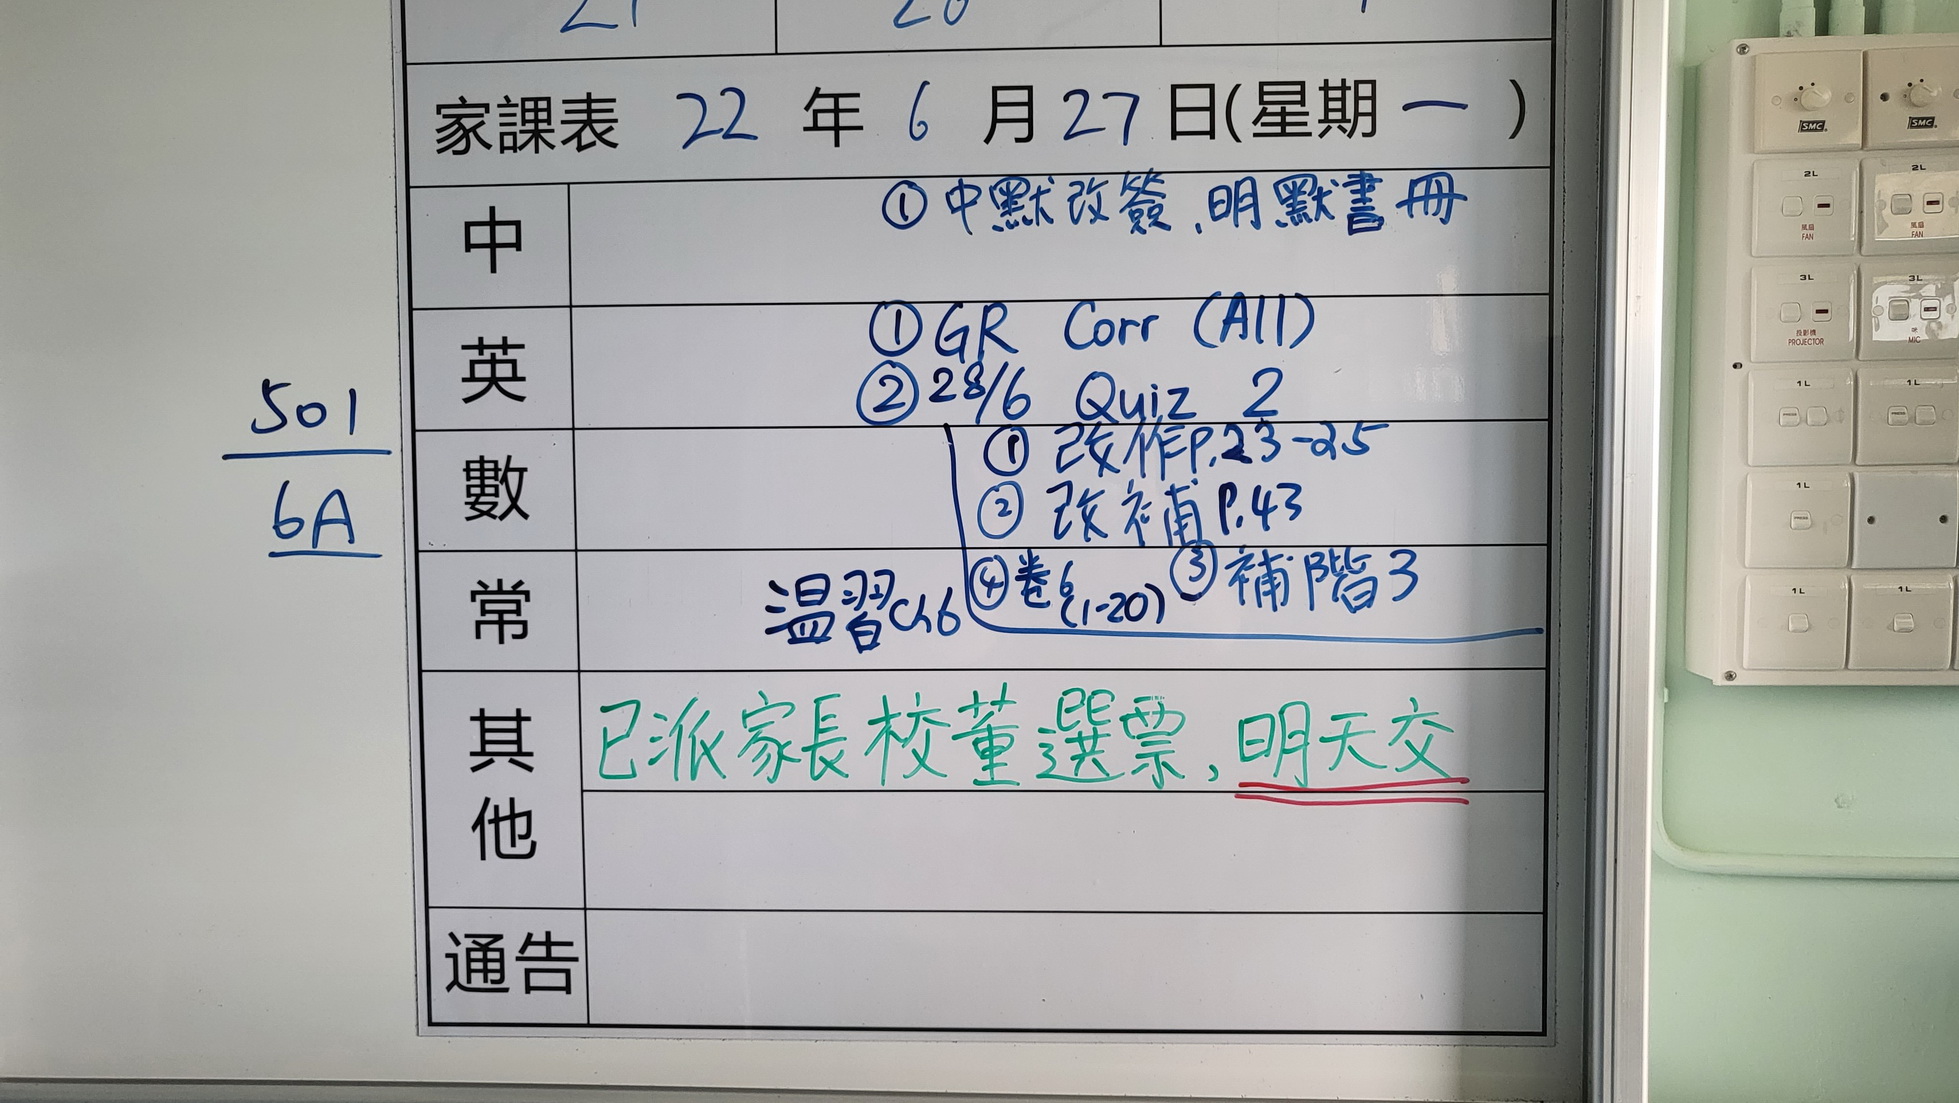 家課表 22 年 6 月 27 日(星期 一 )
中
① 中默改簽，明默書冊
英
① GR Corr (All)
② 28/6 Quiz 2
數
① 改作P.23-25
② 改補 P.43
常
溫習Ch6
④ 卷6(1-20)
③ 補階3
其他
已派家長校董選票，明天交
通告
501
6A
SMC
SMC
2L
風扇
FAN
2L
風扇
FAN
3L
投影機
PROJECTOR
3L
咪
MIC
1L
PRESS
1L
PRESS
1L
PRESS
1L
1L